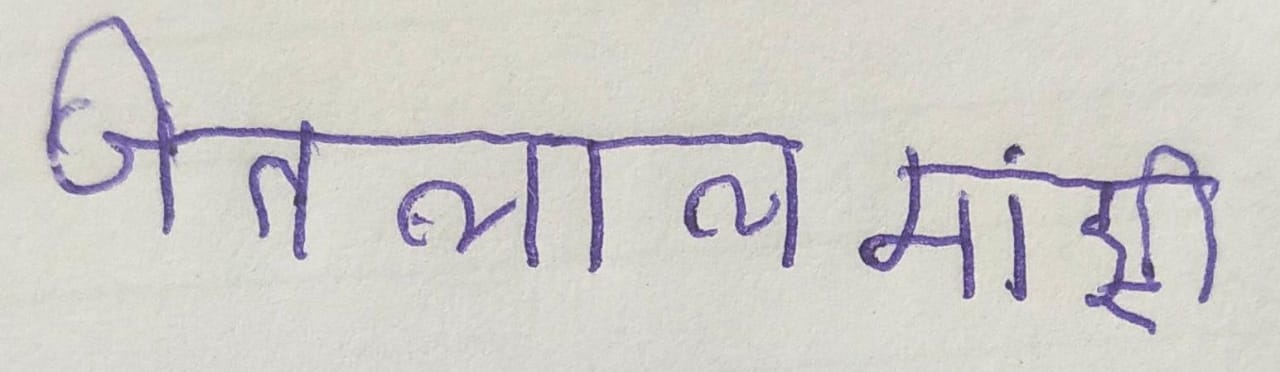 जितलाल मांझी